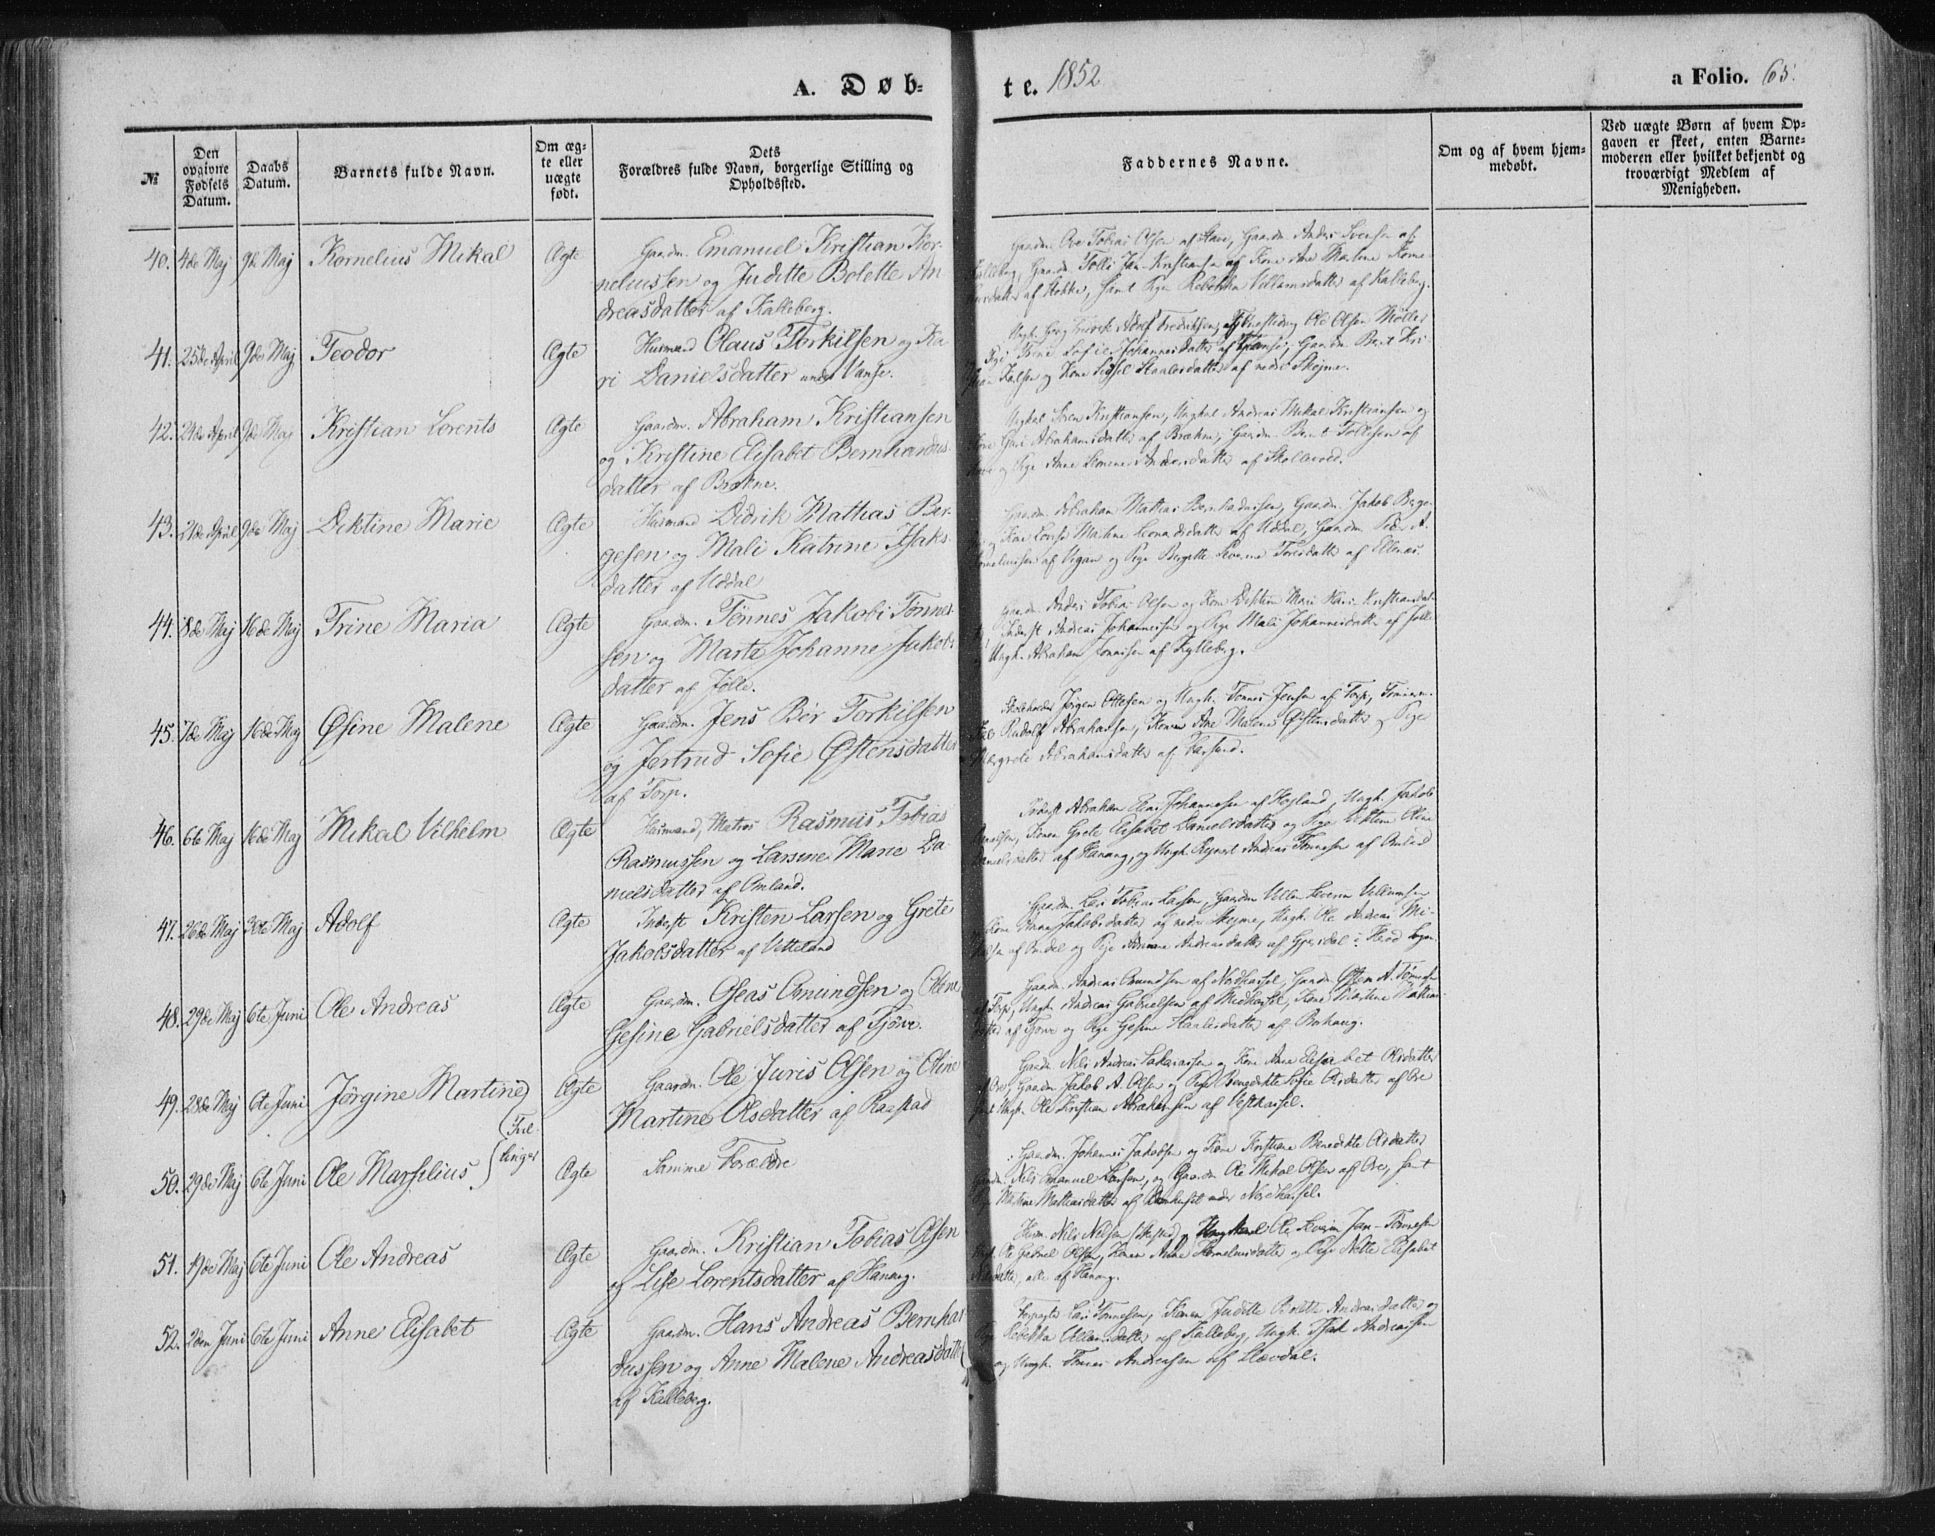 A. Døb-
te. 1852
a Folio. 65.
№
Den opgivne Fødsels Datum.
Daabs Datum.
Barnets fulde Navn.
Om ægte eller uægte født.
Dets
Forældres fulde Navn, borgerlige Stilling og
Opholdssted.
Faddernes Navne.
Om og af hvem hjem-
medøbt.
Ved uægte Børn af hvem Op-
gaven er skeet, enten Barne-
moderen eller hvilket bekjendt og
troværdigt Medlem af
Menigheden.
40. 4de Maj 9de Maj Kornelius Mikal Ægte Gaardm. Emanuel Kristian Kor-
neliussen og Juditte Bolette An
dreasdatter af Kalleberg.
Gaardm. Ove Tobias Olsen af Stave, Gaardm. Anders Svensen af
af Stokke, samt Pige Rebekka Villumsdatter af Kalleberg.
41. 25de April 9de Maj Teodor Ægte Husmand Olaus Torkilsen og Ka
ri Danielsdatter under Vanse.
Ole Olsen Møller
Pige Trine Sofie Johannesdatter af Vanse, Gaardm. Bent Kri
og Kone Sissel Staalesdatter af nedre Skejme.
42. 24de April 9de Maj Kristian Lorents Ægte Gaardm. Abraham Kristiansen
og Kristine Elisabet Bernhardus-
datter af Brækne.
Ungkal Søren Kristiansen, Ungkal Andreas Mikal Kristiansen og
Abrahamsdatter af Brækne, Gaardm. Bent Tollisen af
og Pige Anne Andersdatter af Skollevold.
43. 21de April 9de Maj Diktine Marie Ægte Husmand Didrik Mathias Ber-
gesen og Mali Katrine Isaks-
datter af Uddal
Gaardm. Abraham Mathias Bernhardussen, Gaardm. Jakob Berge-
Kone Lovise Martine Leonardsdatter af Uddal, Gaardm. Peder A.
Korneliussen af Vigan og Pige Bergitte Severine Toresdatter af Ellenes.
44. 8de Maj 16de Maj Trine Maria Ægte Gaardm. Tønnes Jakobi Tønnes-
sen og Marte Johanne Jakobs-
datter af Jølle.
Gaardm. Anders Tobias Olsen og Kone
Inderst Andreas Johannesen og Pige Mali Johannesdatter af Jølle
Ungk. Abraham Tønnesen af Kylleberg.
45. 7de Maj 16de Maj Øsine Malene Ægte Gaardm. Jens Bér Torkilsen
og Jertrud Sofie Østensdatter
af Torp.
Skoleholder Jørgen Ottesen og Ungk. Tønnes Jensen af Torp, Tømmerm.
Rudolf Abrahamsen, Konen Ane Malene Østensdatter og Pige
Margrete Abrahamsdatter af Farsund.
46. 6te Maj 16de Maj Mikal Vilhelm Ægte Husmand, Matros Rasmus Tobias
Rasmussen og Larsine Marie Da
nielsdatter af Omland.
Inderst Abraham Elias Johannesen af Højland, Ungk. Jakob
Konen Grete Elisabet Danielsdatter og Pige Oline
Danielsdatter af Hanang, og Ungk. Rejnert Andreas Tønnesen af Omland
47. 26de Maj 30te Maj Adolf Ægte Inderst Kristen Larsen og Grete
Jakobsdatter af Vetteland
Gaardm. Lars Tobias Larsen, Gaardm. Villum Severin Villumsen
Kone Jakobsdatter af nedre Skejme, Ungk. Ole Andreas Mi-
og Pige Andreasdatter af Gjersdal i Herad Sogn
48. 29de Maj 6te Juni Ole Andreas Ægte Gaardm. Oseas Omundsen og Oline
Gesine Gabrielsdatter af Tjørve.
Gaardm. Andreas Omundsen af Nordhassel, Gaardm. Østen A. Tønnesen
af Torp, Ungk. Andreas Gabrielsen af Midhassel, Kone Martine Mathias-
datter af Tjørve og Pige Gesine Staalesdatter af Brekne.
49. 28de Maj 6te Juni Jørgine Martine Ægte Gaardm. Ole Juris Olsen og Oline
Martine Olsdatter af Raastad
(Tvil-
linger
Gaardm. Nils Andreas Sakariassen og Kone Anne Elisabet Olsdatter
af Ore, Gaardm. Jakob A. Olsen og Pige Bengedikte Sofie Olsdatter af Ore
samt Ungk. Ole Kristian Abrahamsen af Vesthassel.
50. 29de Maj 6te Juni Ole Marsilius Ægte Samme Forældre
Gaardm. Johannes Jakobsen og Kone Kristiane Benedikte Olsdatter
Nils Emanuel Larsen, og Gaardm. Ole Mikal Olsen af Ore, samt
Pige Martine Mathiasdatter af under Nordhassel.
51. 19de Maj 6te Juni Ole Andreas Ægte Gaardm. Kristian Tobias Olsen
og Lise Lorentsdatter af Hanang.
Husm. Nils Nilsen Ole Severin Jan-Tønnesen
Ungk. Ole Gabriel Olsen, Konen Anne Kornelusdatter og Pige Nette Elisabet
alle af Hanang.
52. 2den Juni 6te Juni Anne Elisabet Ægte Gaardm. Hans Andreas Bernhar-
dussen og Anne Malene Andreasdatter
af Kalleberg.
Lars Tønnesen, Konen Juditte Bolette Andreasdatter og
Pige Rebekka Villumsdatter af Kalleberg, Ungk. Isak Andreassen
og Ungk. Tønnes Andreassen af Slevdal.